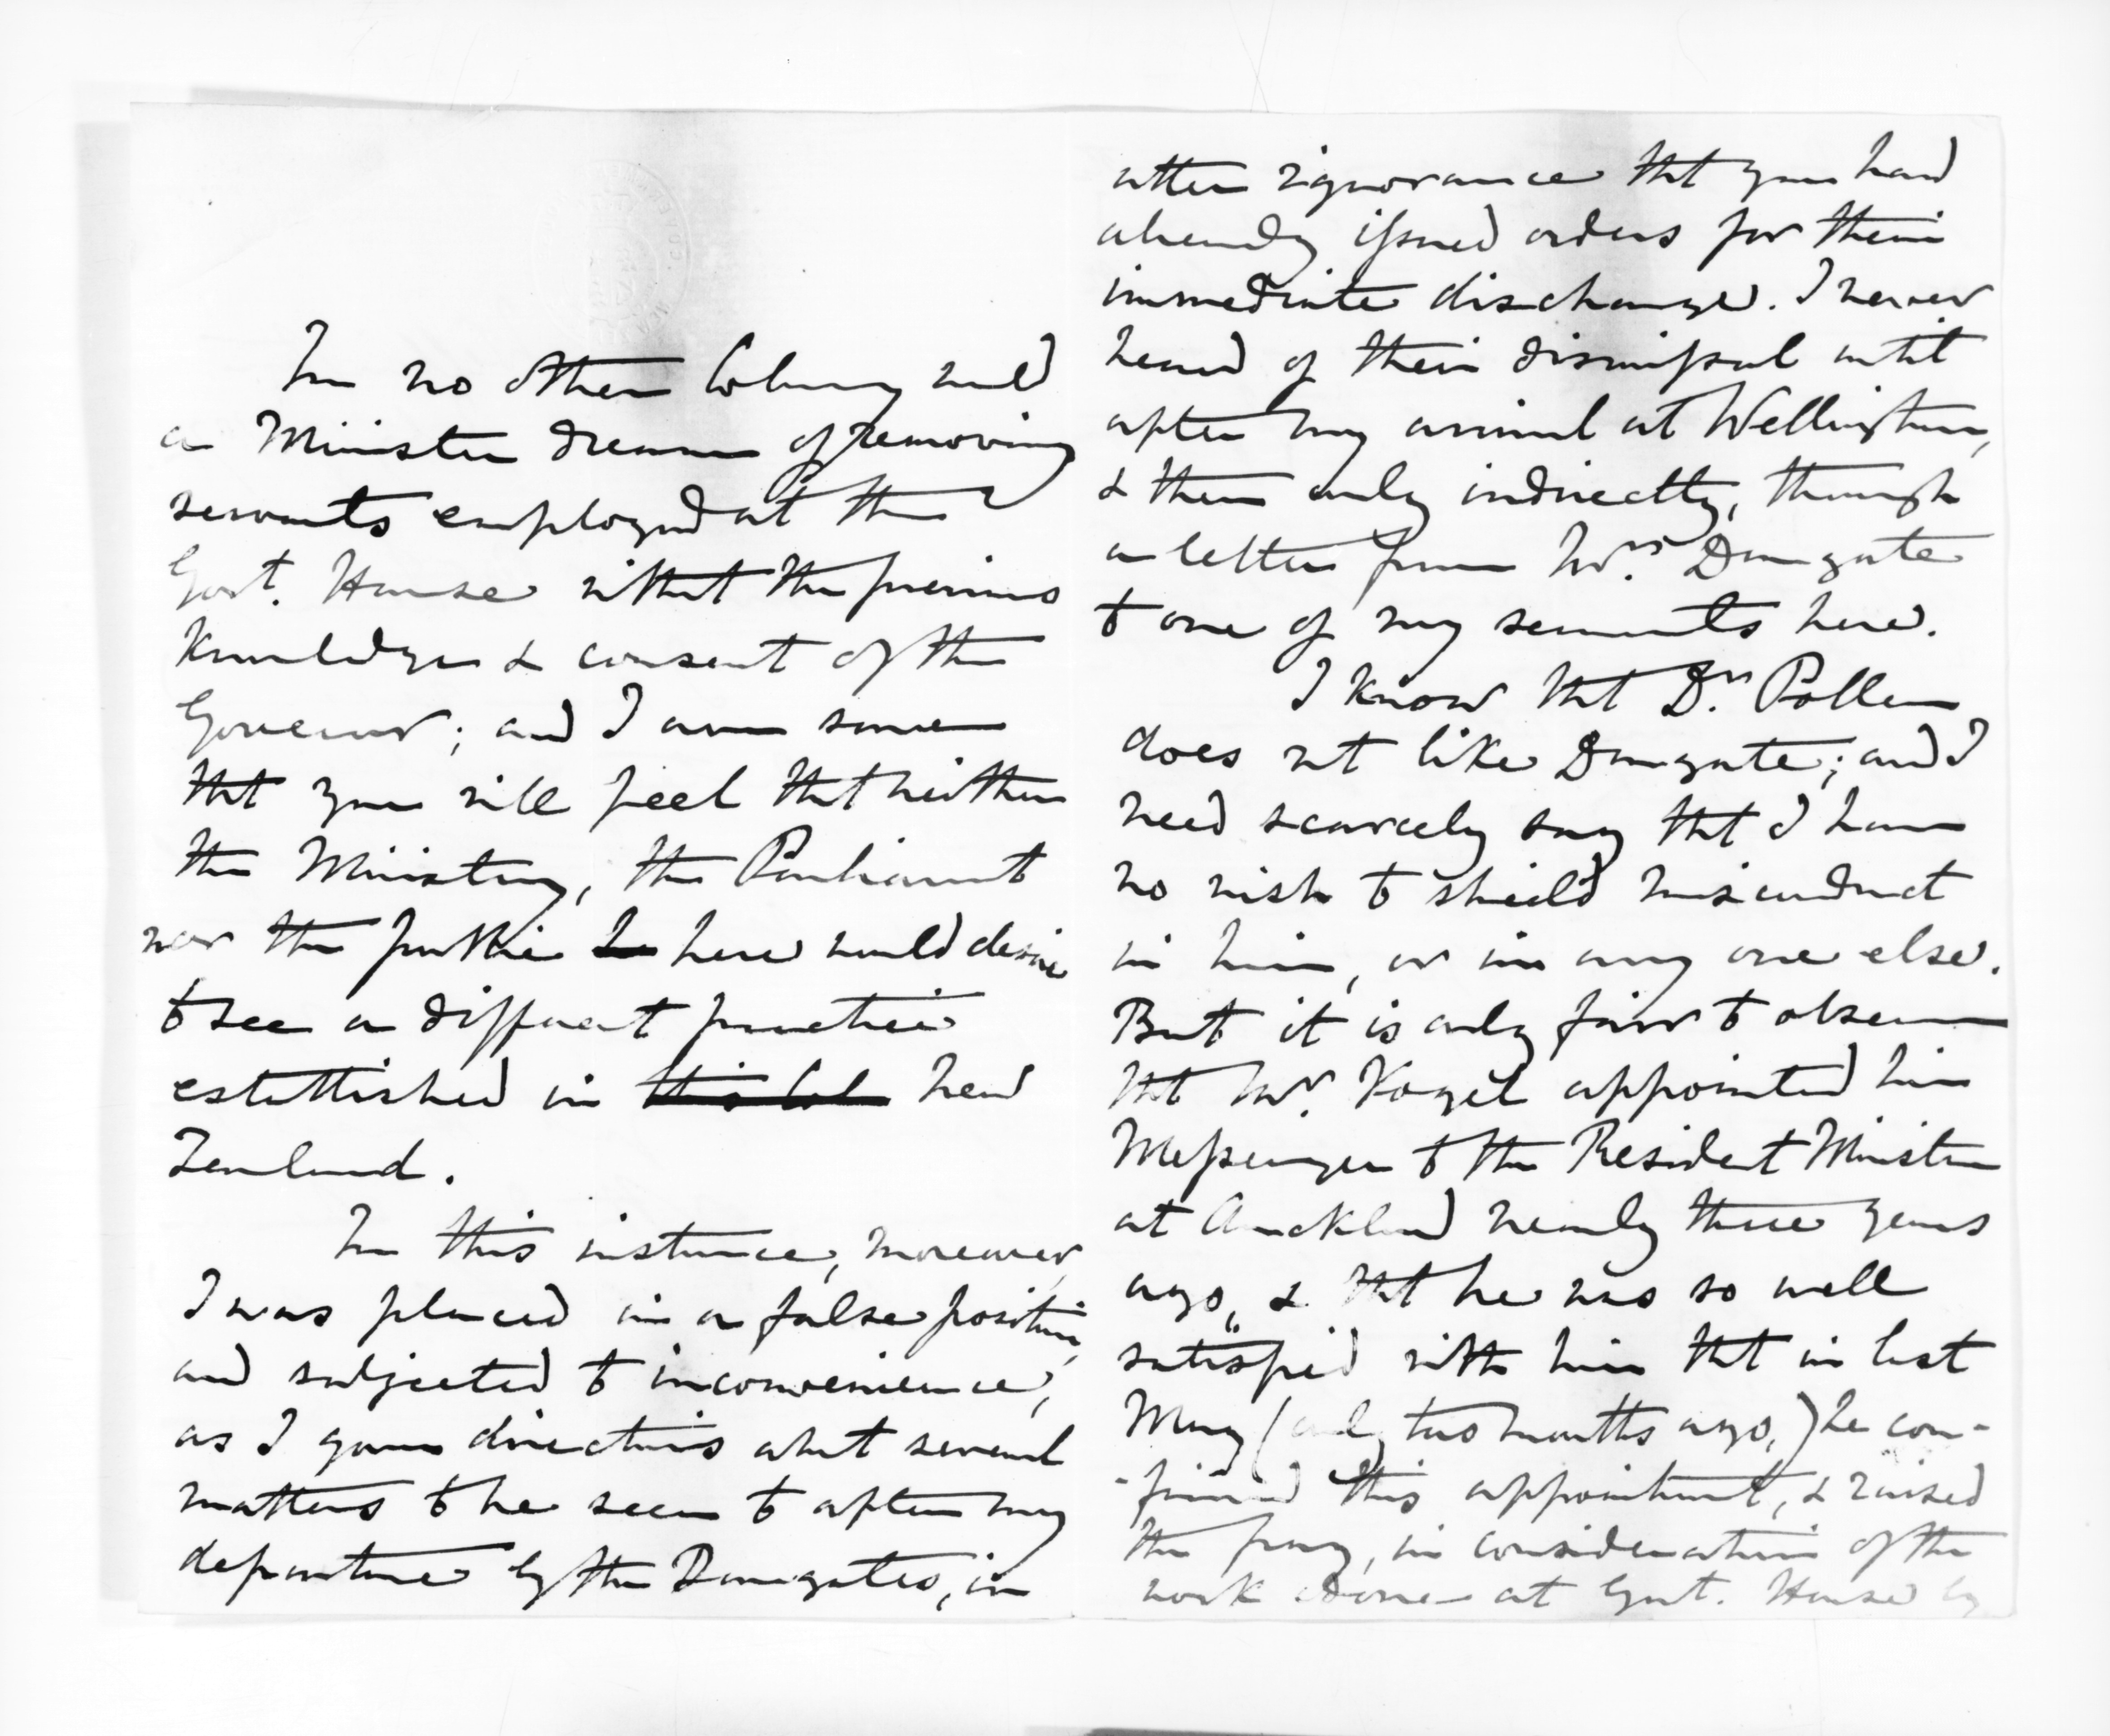 In no other Colony would
a Minister dream of removing
servants employed at the
Govt. House without the previous
knowledge & consent of the
Governor; and I am sure
that you will feel that neither
the Ministry, the Parliament
nor the public here would desire
to see a different practice
established in this Col New
Zealand.
In this instance, moreover,
I was placed in a false position,
and subjected to inconvenience,
as I gave directions about several
matters to be seen to after my
departure by the Dungates, in
utter ignorance that you had
already issued orders for their
immediate discharge. I never
heard of their dismissal until
after my arrival at Wellington,
& then only indirectly, through
a letter from Mrs. Dungate
to one of my servants here.
I know that Dr. Pollen
does not like Dungate; and I
need scarcely say that I have
no wish to shield misconduct
in him, or in any one else.
But it is only fair to observe
that Mr. Vogel appointed him
Messenger to the Resident Minister
at Auckland nearly three years
ago, & that he was so well
satisfied with him that in last
May (only two months ago,) he con-
-firmed this appointment, & raised
the pay, in consideration of the
work done at Govt. House by